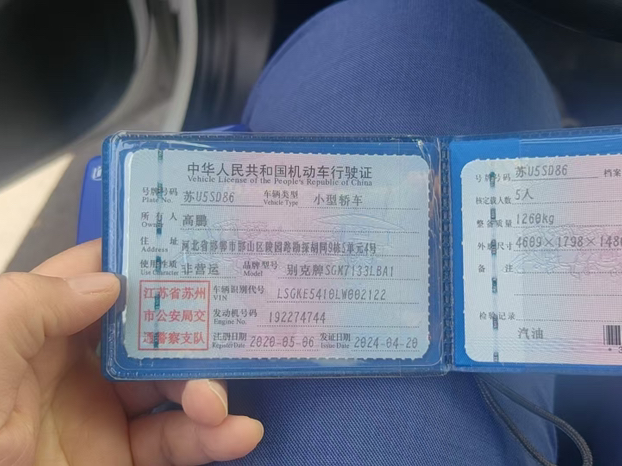 中华人民共和国机动车行驶证
Vehicle License of the People's Republic of China
号牌号码 苏U5SD86 车辆类型 小型轿车
Plate No. Vehicle Type
所有人 高鹏
Owner
住址 河北省邯郸市邯山区陵园路勘探胡同9栋5单元4号
Address
使用性质 非营运 品牌型号 别克牌SGK7133LBA1
Use Character Model
江苏省苏州
市公安局交
通警察支队
车辆识别代号 LSGKE5410LW002122
VIN
发动机号码 192274744
Engine No.
注册日期 2020-05-06 发证日期 2024-04-20
Register Date Issue Date
号牌号码 苏U5SD86 档案
核定载人数 5人
整备质量 1260kg
外廓尺寸 4609×1798×148
备注
检验记录
汽油